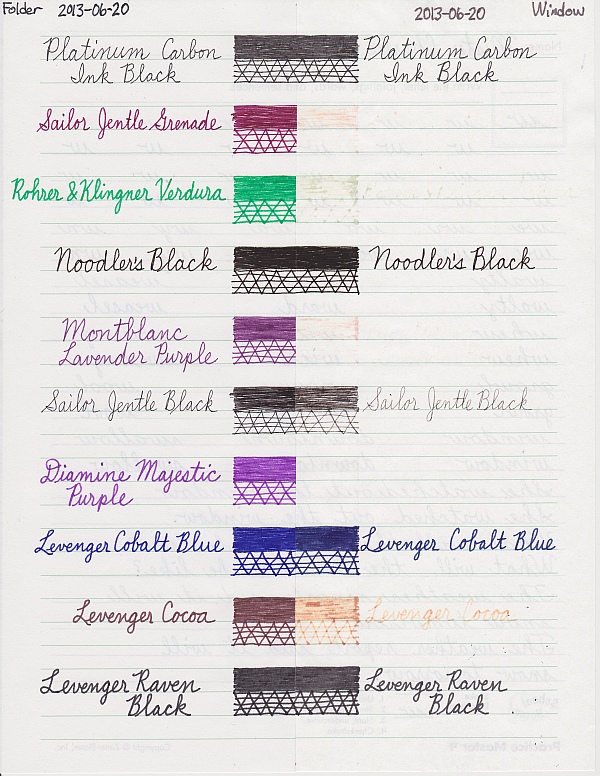 Folder 2013-06-20 2013-06-20 Window
Platinum Carbon Platinum Carbon
Ink Black Ink Black
Sailor Jentle Grenade
Rohrer & Klingner Verdura
Noodler's Black Noodler's Black
Montblanc
Lavender Purple
Sailor Jentle Black Sailor Jentle Black
Diamine Majestic
Purple
Levenger Cobalt Blue Levenger Cobalt Blue
Levenger Cocoa Levenger Cocoa
Levenger Raven Levenger Raven
Black Black